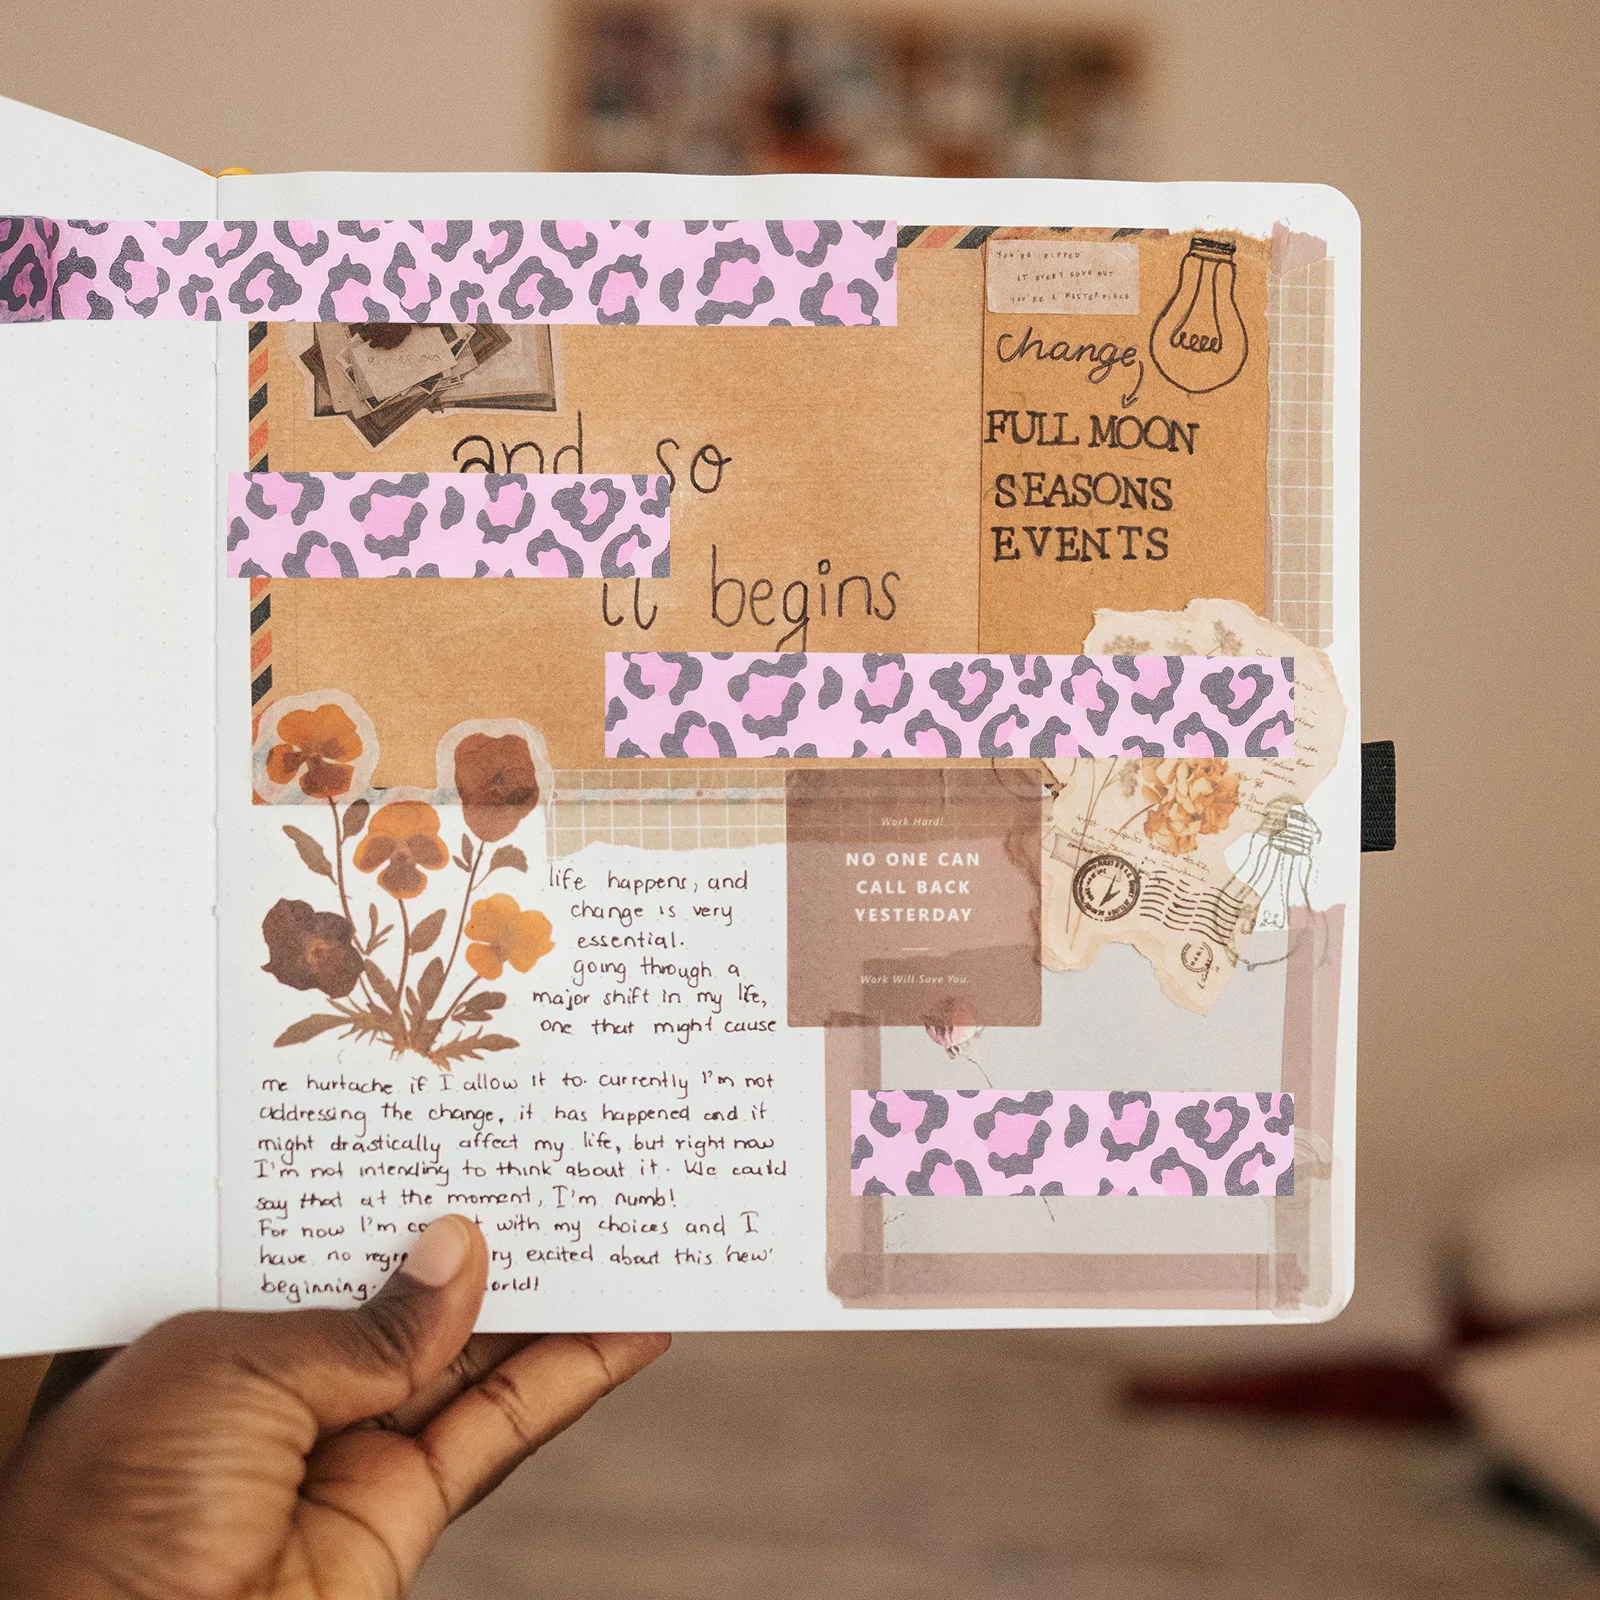 YOU'RE RIPPED
AT EVERY EDGE BUT
YOU'RE A MASTERPIECE
change
FULL MOON
SEASONS
EVENTS
and so
it begins
Work Hard!
NO ONE CAN
CALL BACK
YESTERDAY
Work Will Save You.
life happens, and
change is very
essential.
going through a
major shift in my life,
one that might cause
me hurtache if I allow it to. currently I'm not
addressing the change, it has happened and it
might drastically affect my life, but right now
I'm not intending to think about it. We could
say that at the moment, I'm numb!
For now I'm with my choices and I
have no excited about this 'new'
beginning.